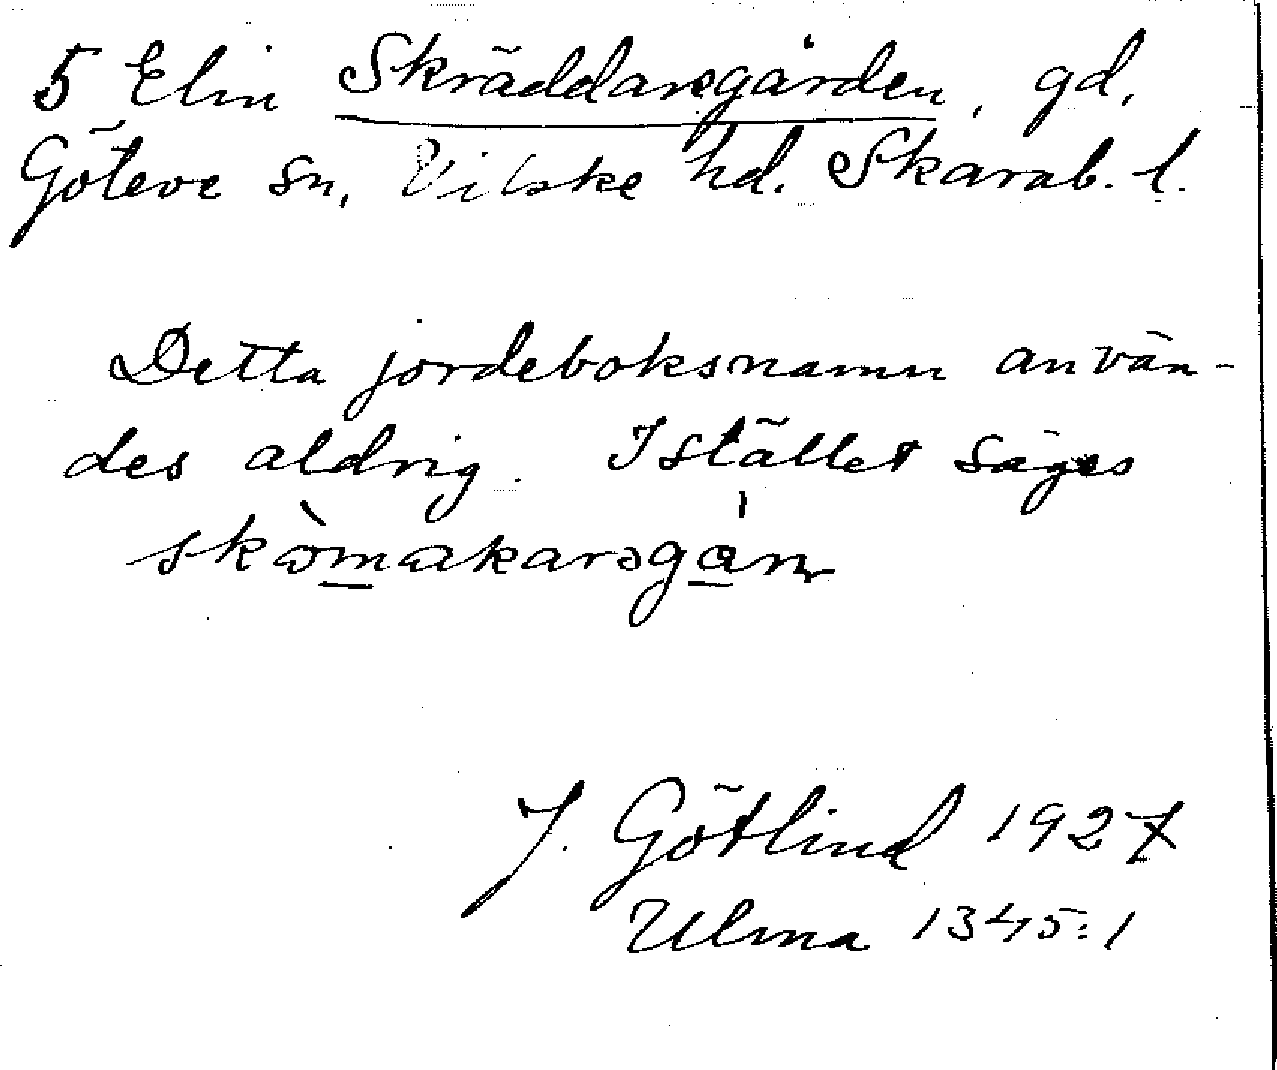 5 Elin Skräddaregården, gd,
Göteve sn, Vilske hd. Skarab. l.
Detta jordeboksnamn använ-
des aldrig. Istället säges
skòmakarsgån
J. Götlind 1927
Ulma 1345:1